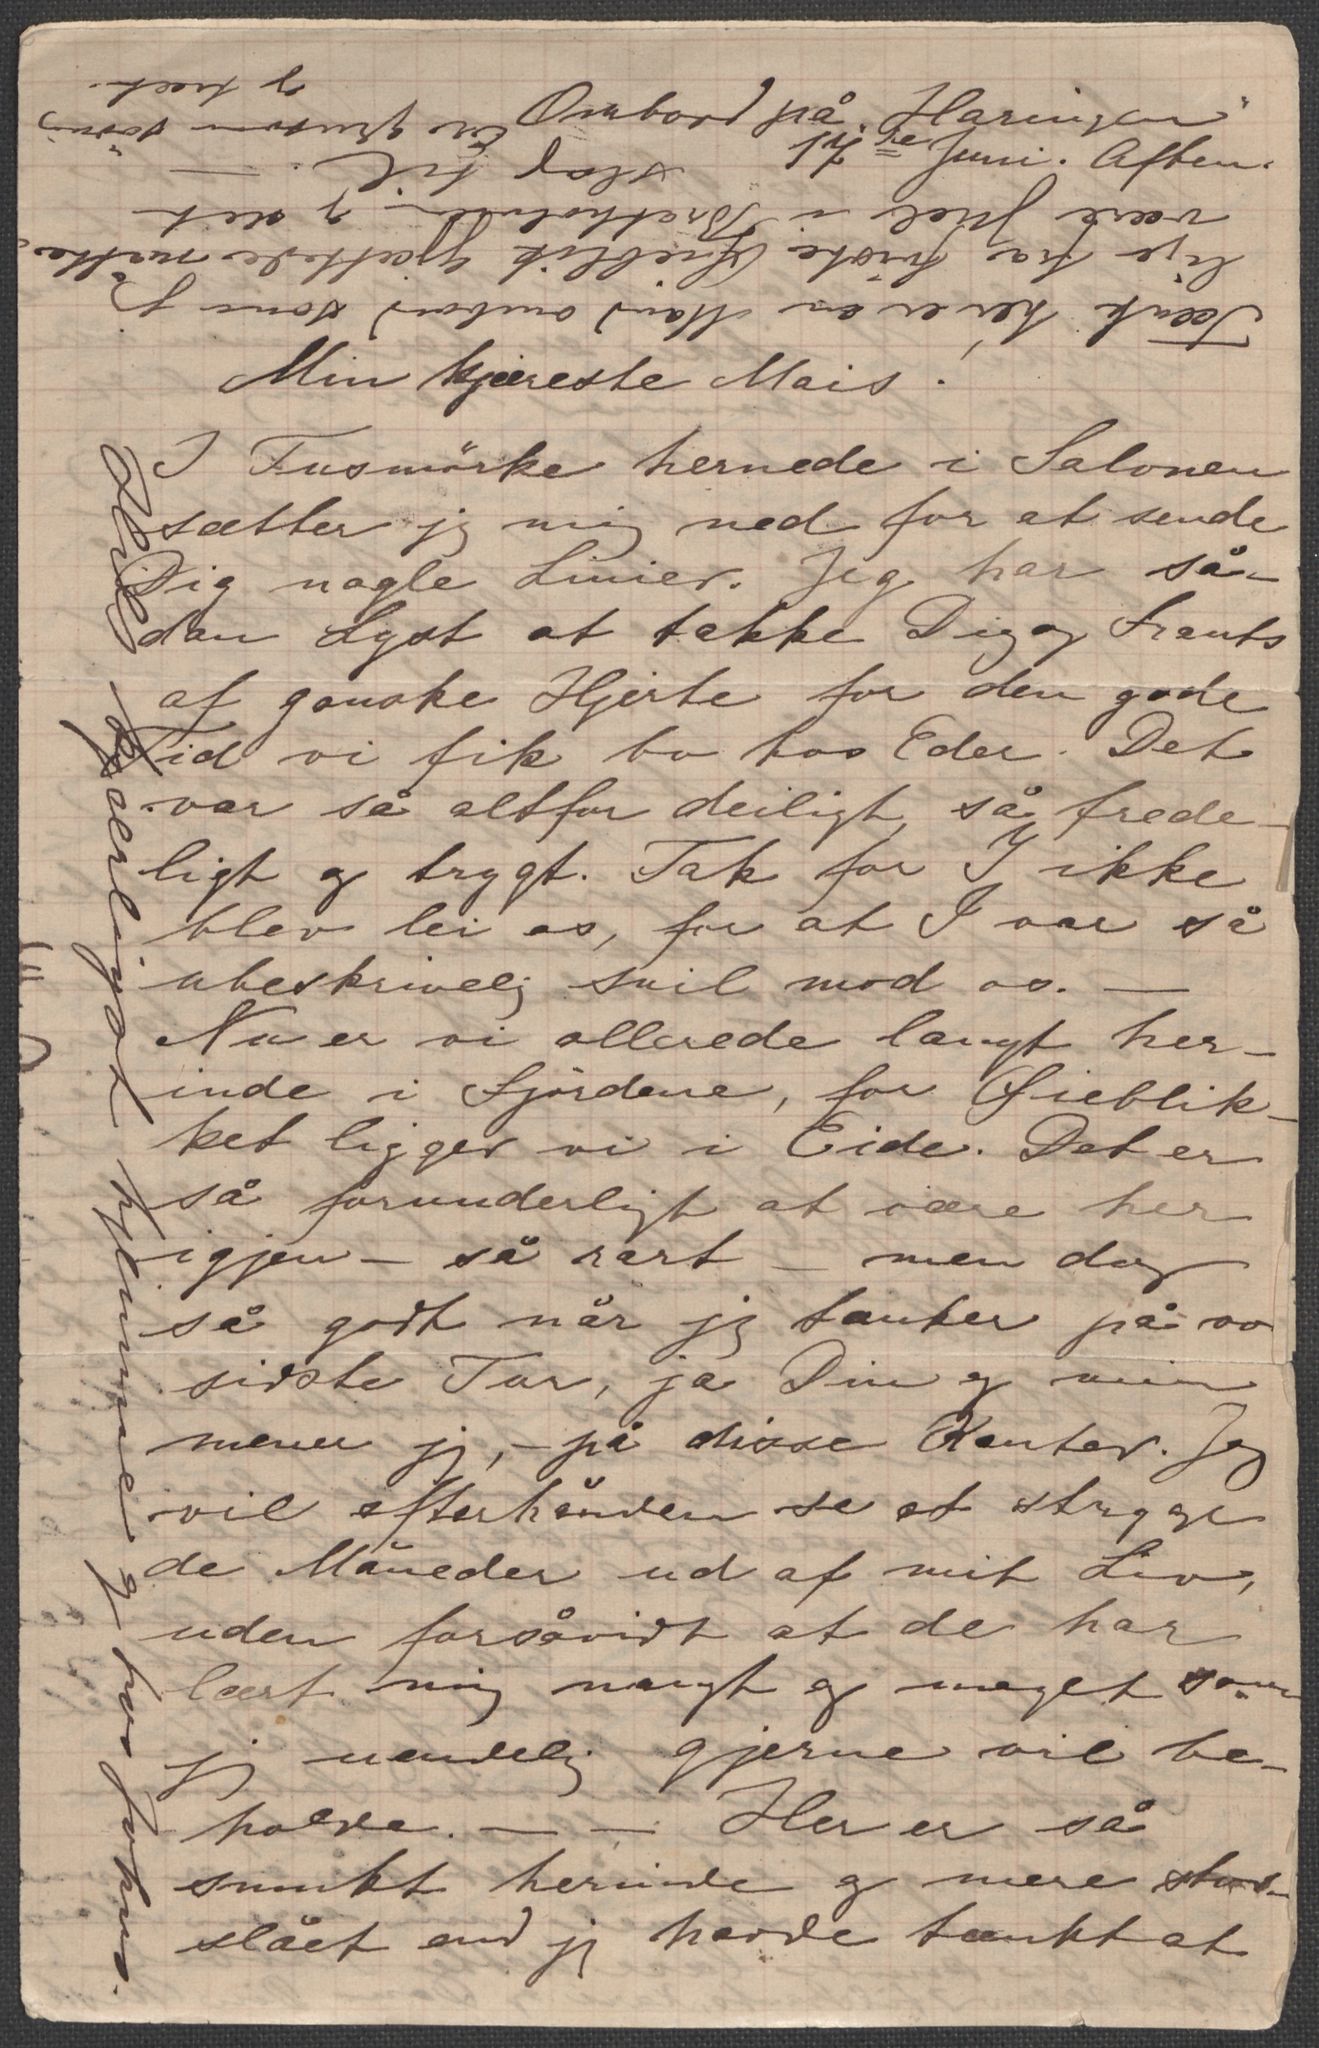 Ombord på "Haringen"
7de Juni. Aften.
Min kjæreste Mais!
I Tusmörke hernede i Salonen
sætter jeg mig ned for at sende
Dig nogle Linier. Jeg har så-
dan Lyst at takke Dig og Frants
af ganske Hjerte for den gode
Tid vi fik bo hos Eder. Det
var så altfor deiligt, så frede-
ligt og trygt. Tak for I ikke
blev lei os, for at I var så
ubeskrivelig snil mod os. —
Nu er vi allerede langt her-
inde i Fjördene, for Øieblik-
ket ligger vi i Eide. Det er
så forunderligt at være her
igjen — så rart — men dog
så godt når jeg tænker på vor
sidste Tur, ja Din og min
mener jeg, — på disse Kanter. Jeg
vil efterhånden se at stryge
de Måneder ud af mit Liv,
uden forsåvidt at de har
lært mig mangt og meget som
jeg uendelig gjerne vil be-
holde. — — Her er så
smukt herinde og mere stor-
slået end jeg havde tænkt at
Tænk her er en Mand ombord som på
lige fra første Øieblik gjættede måtte
være Juel i Bratholmen og det
slog til. —
Er grusom søvnig
og træt.
Hils kjærligst hjemme og hos Johns.